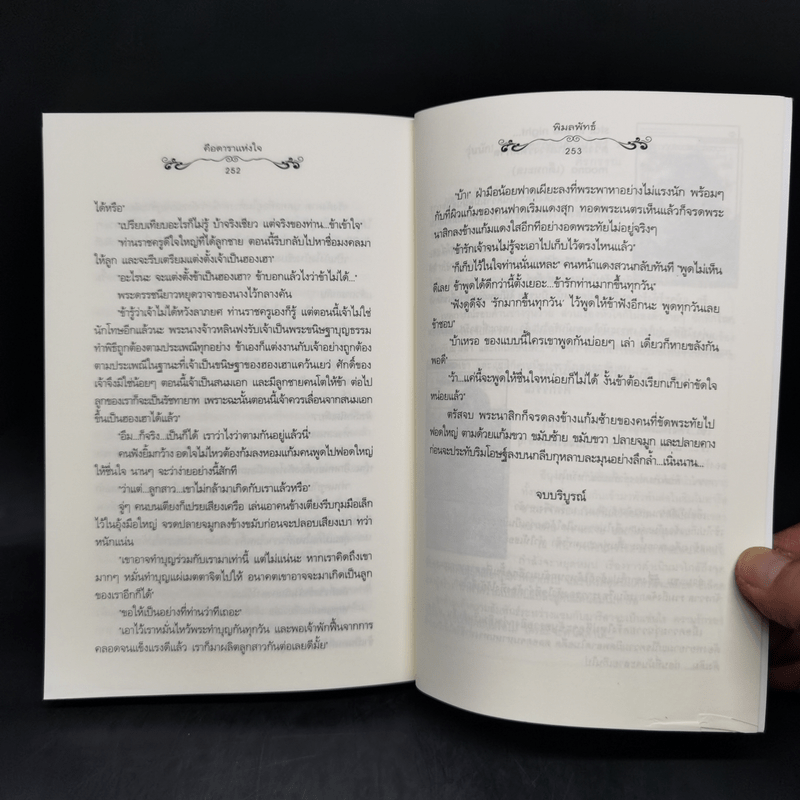 คือดาราแห่งใจ
252
ได้หรือ"
"เปรียบเทียบอะไรก็ไม่รู้ บ้าจริงเชียว แต่จริงของท่าน...ข้าเข้าใจ"
"ท่านราชครูดีใจใหญ่ที่ได้ลูกชาย ตอนนี้รีบกลับไปหาชื่อมงคลมา
ให้ลูก และจะรีบเตรียมแต่งตั้งเจ้าเป็นฮองเฮา"
"อะไรนะ จะแต่งตั้งข้าเป็นฮองเฮา? ข้าบอกแล้วไงว่าข้าไม่ได้..."
พระดรรชนียาวหยุดวาจาของนางไว้กลางคัน
"ข้ารู้ว่าเจ้าไม่ได้หวังลาภยศ ท่านราชครูเองก็รู้ แต่ตอนนี้เจ้าไม่ใช่
นักโทษอีกแล้วนะ พระนางจ้าวหลินฟงรับเจ้าเป็นพระขนิษฐาบุญธรรม
ทำพิธีถูกต้องตามประเพณีทุกอย่าง ข้าเองก็แต่งงานกับเจ้าอย่างถูกต้อง
ตามประเพณีในฐานะที่เจ้าเป็นขนิษฐาของฮองเฮาแคว้นเยว่ ศักดิ์ของ
เจ้าจึงมิใช่น้อยๆ ตอนนี้เจ้าเป็นสนมเอก และมีลูกชายคนโตให้ข้า ต่อไป
ลูกของเราก็จะเป็นรัชทายาท เพราะฉะนั้นตอนนี้เจ้าควรเลื่อนจากสนมเอก
ขึ้นเป็นฮองเฮาได้แล้ว"
"อืม...ก็จริง...เป็นก็ได้ เราว่าไงว่าตามกันอยู่แล้วนี่"
คนฟังยิ้มกว้าง อดใจไม่ไหวต้องก้มลงหอมแก้มคนพูดไปฟอดใหญ่
ให้ชื่นใจ นานๆ จะว่าง่ายอย่างนี้สักที
"ว่าแต่...ลูกสาว...เขาไม่กล้ามาเกิดกับเราแล้วหรือ"
จู่ๆ คนบนเตียงก็เปรยเสียงเครือ เล่นเอาคนข้างเตียงรีบกุมมือเล็ก
ไว้ในอุ้งมือใหญ่ จรดปลายจมูกลงข้างขมับก่อนจะปลอบเสียงเบา ทว่า
หนักแน่น
"เขาอาจทำบุญร่วมกับเรามาเท่านี้ แต่ไม่แน่นะ หากเราคิดถึงเขา
มากๆ หมั่นทำบุญแผ่เมตตาจิตไปให้ อนาคตเขาอาจจะมาเกิดเป็นลูก
ของเราอีกก็ได้"
"ขอให้เป็นอย่างที่ท่านว่าทีเถอะ"
"เอาไว้เราหมั่นไหว้พระทำบุญกันทุกวัน และพอเจ้าพักฟื้นจากการ
คลอดจนแข็งแรงดีแล้ว เราก็มาผลิตลูกสาวกันต่อเลยดีมั้ย"
พิมลพัทธ์
253
"บ้า!" ฝ่ามือน้อยฟาดเผียะลงที่พระพาหาอย่างไม่แรงนัก พร้อมๆ
กับที่ผิวแก้มของคนฟาดเริ่มแดงสุก ทอดพระเนตรเห็นแล้วก็จรดพระ
นาสิกลงข้างแก้มแดงใสอีกทีอย่างอดพระทัยไม่อยู่จริงๆ
"ข้ารักเจ้าจนไม่รู้จะเอาไปเก็บไว้ตรงไหนแล้ว"
"ก็เก็บไว้ในใจท่านนั่นแหละ" คนหน้าแดงสวนกลับทันที "พูดไม่เห็น
ดีเลย ข้าพูดได้ดีกว่านี้ตั้งเยอะ...ข้ารักท่านมากขึ้นทุกวัน"
"ฟังดูดีจัง 'รักมากขึ้นทุกวัน' ไว้พูดให้ข้าฟังอีกนะ พูดทุกวันเลย
ข้าชอบ"
"บ้าเหรอ ของแบบนี้ใครเขาพูดกันบ่อยๆ เล่า เดี๋ยวก็หายขลังกัน
พอดี"
"ว้า...แค่นี้จะพูดให้ชื่นใจหน่อยก็ไม่ได้ งั้นข้าต้องเรียกเก็บค่าขัดใจ
หน่อยแล้ว"
ตรัสจบ พระนาสิกก็จรดลงข้างแก้มซ้ายของคนที่ขัดพระทัยไป
ฟอดใหญ่ ตามด้วยแก้มขวา ขมับซ้าย ขมับขวา ปลายจมูก และปลายคาง
ก่อนจะประทับริมโอษฐ์ลงบนกลีบกุหลาบละมุนอย่างลึกล้ำ...เนิ่นนาน...
จบบริบูรณ์